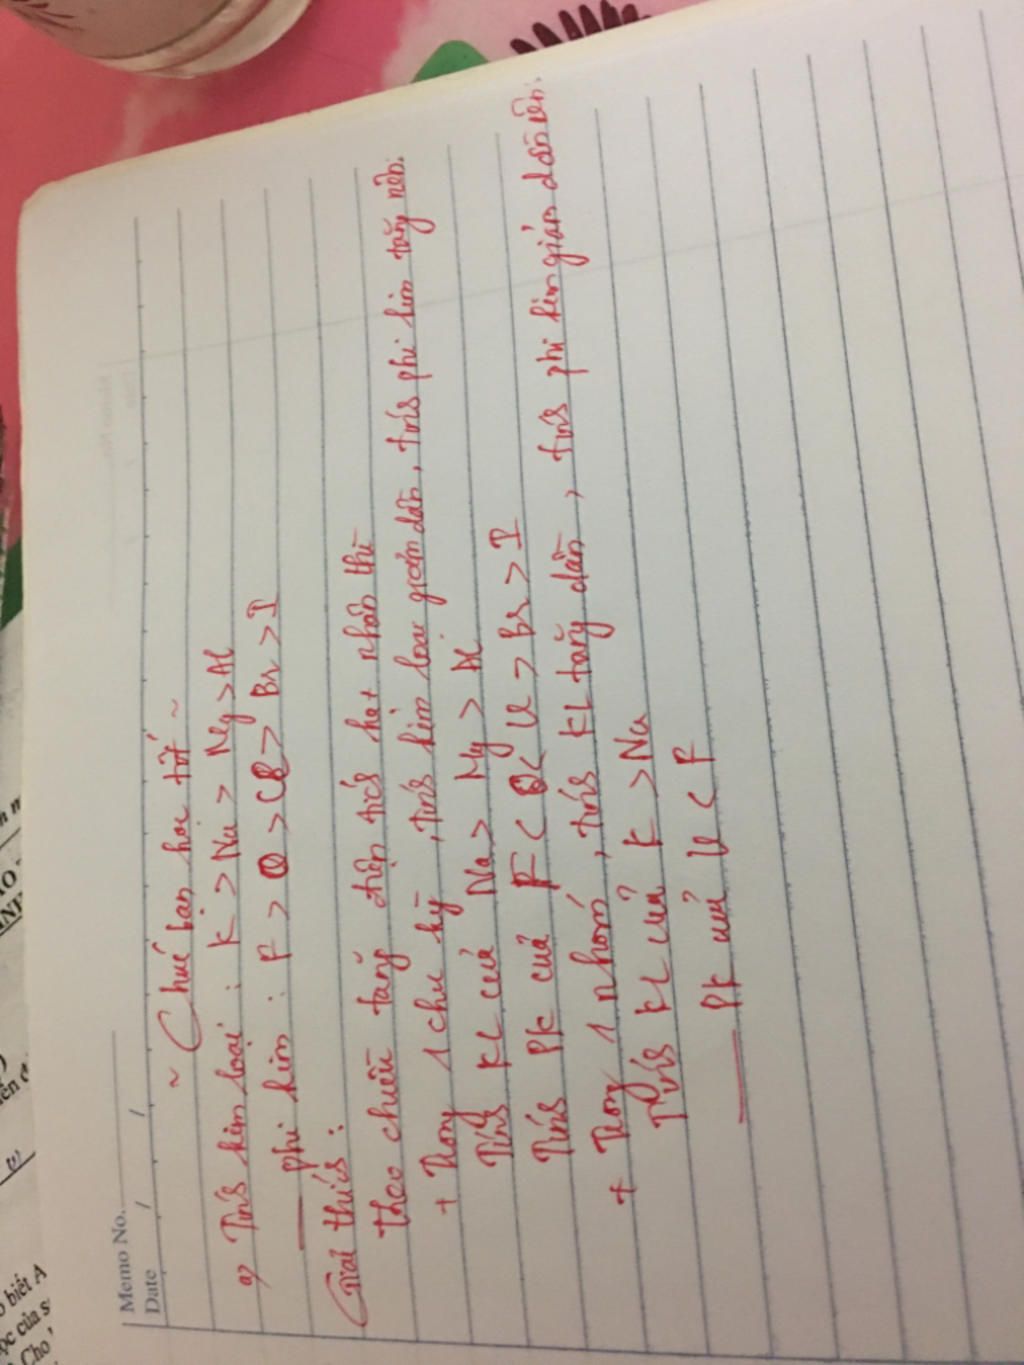 Memo No.
Date / /
~ Chúc bạn học tốt ~
a) Tính kim loại : K > Na > Mg > Al
phi kim : F > O > Cl > Br > I
Giải thích :
Theo chiều tăng điện tích hạt nhân thì
+ Trong 1 chu kỳ, tính kim loại giảm dần, tính phi kim tăng nên:
Tính KL của Na > Mg > Al
Tính PK của F < O < Cl > Br > I
+ Trong 1 nhóm, tính KL tăng dần, tính phi kim giảm dần nên:
Tính KL của K > Na
PK của Cl < F
biết A
ọc của s
Cho